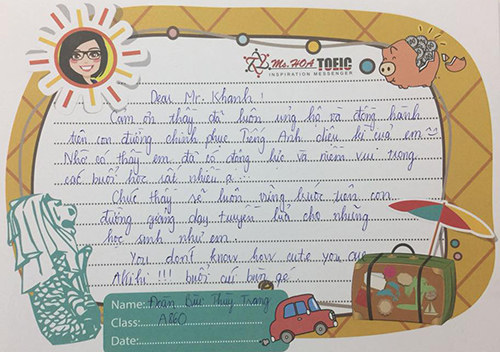 Ms.HOA TOEIC
INSPIRATION MESSENGER
Dear Mr. Khanh!
Cảm ơn thầy đã luôn ủng hộ và đồng hành
trên con đường chinh phục Tiếng Anh diệu kì của em
Nhờ có thầy em đã có động lực và niềm vui trong
các buổi học rất nhiều ạ.
Chúc thầy sẽ luôn vững bước trên con
đường giảng dạy truyền lửa cho những
học sinh như em.
You don't know how cute you are
Ahihi !!!
Name: Đoàn Bùi Thùy Trang
Class: A860
Date: